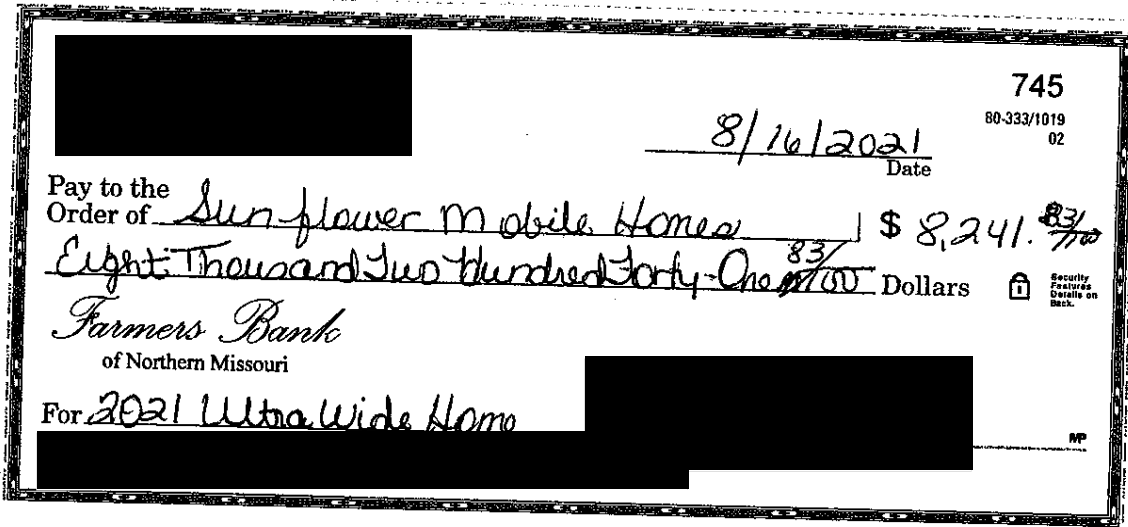 745
80-333/1019
02
8/16/2021
Date
Pay to the
Order of Sunflower Mobile Homes $ 8,241. 83/100
Eight Thousand Two Hundred Forty-One 83/100 Dollars
Security
Features
Details on
Back.
Farmers Bank
of Northern Missouri
For 2021 Ultra Wide Home
MP